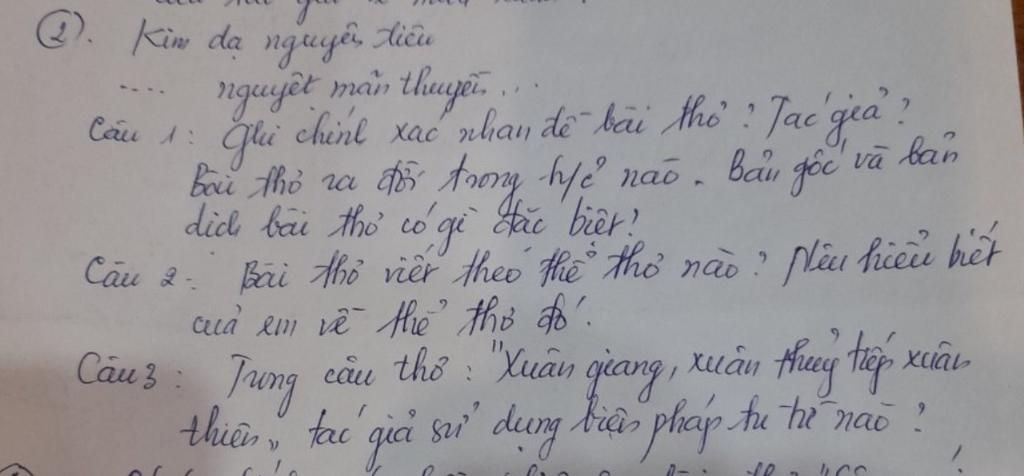 ②. Kim dạ nguyên tiêu
.... nguyệt mãn thuyền...
Câu 1: Ghi chính xác nhan đề bài thơ? Tác giả?
Bài thơ ra đời trong h/c nào. Bản gốc và bản
dịch bài thơ có gì đặc biệt?
Câu 2: Bài thơ viết theo thể thơ nào? Nêu hiểu biết
của em về thể thơ đó.
Câu 3: Trong câu thơ: "Xuân giang, xuân thuỷ tiếp xuân
thiên" tác giả sử dụng biện pháp tu từ nào?